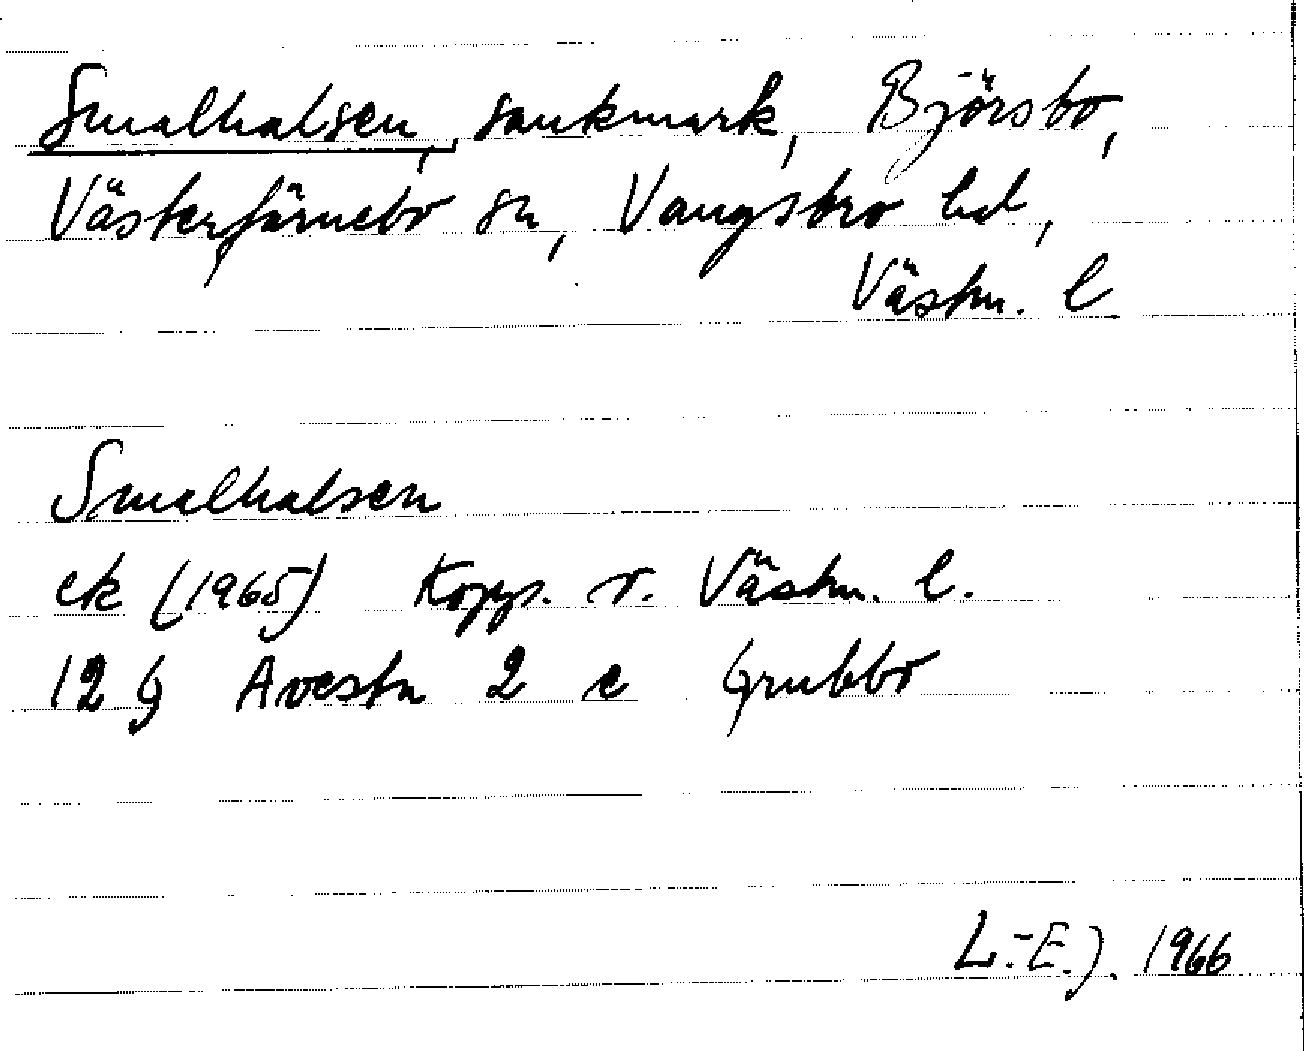 Smalhalsen, sankmark, Björsbo,
Västerfärnebo sn, Vangsbro hd,
Västm. l
Smalhalsen
ek (1965) Kopp. o. Västm. l.
12 G Avesta 2 e Grubbo
L.-E.J. 1966